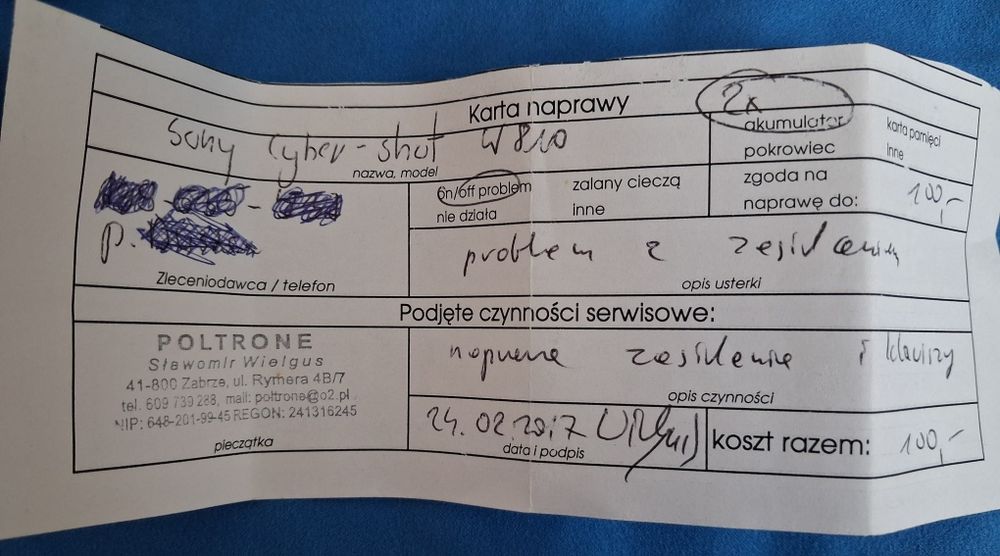 Karta naprawy
Sony Cyber-shot W810
nazwa, model
2x
akumulator
karta pamięci
pokrowiec
inne
on/off problem
zalany cieczą
nie działa
inne
zgoda na
naprawę do:
100,-
p.
Zleceniodawca / telefon
problem z zasilaniem
opis usterki
Podjęte czynności serwisowe:
POLTRONE
Sławomir Wielgus
41-800 Zabrze, ul. Rymera 4B/7
tel. 609 739 288, mail: poltrone@o2.pl
NIP: 648-201-99-45 REGON: 241316245
pieczątka
naprawa zasilania i klawiszy
opis czynności
24.02.2017
data i podpis
koszt razem:
100,-